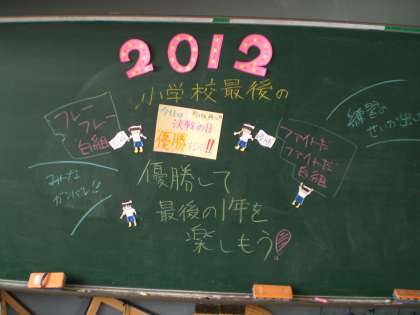 2012
小学校最後の
フレー
フレー
白組
決戦の日
優勝
!!
ファイトだ
ファイトだ
白組
練習の
せいか出し
みんな
ガンバレ!!
優勝して
最後の1年を
楽しもう!